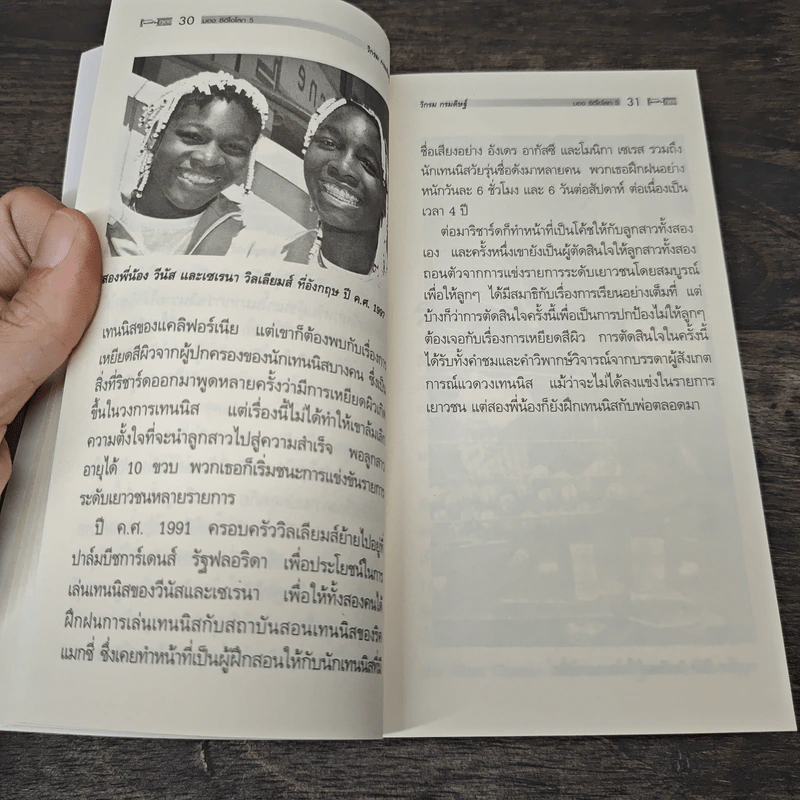 30 มอง ซีอีโอโลก 5
วิกรม
สองพี่น้อง วีนัส และเซเรนา วิลเลียมส์ ที่อังกฤษ ปี ค.ศ. 1997
เทนนิสของแคลิฟอร์เนีย แต่เขาก็ต้องพบกับเรื่องการ
เหยียดสีผิวจากผู้ปกครองของนักเทนนิสบางคน ซึ่งเป็น
สิ่งที่ริชาร์ดออกมาพูดหลายครั้งว่ามีการเหยียดผิวเกิด
ขึ้นในวงการเทนนิส แต่เรื่องนี้ไม่ได้ทำให้เขาล้มเลิก
ความตั้งใจที่จะนำลูกสาวไปสู่ความสำเร็จ พอลูกสาว
อายุได้ 10 ขวบ พวกเธอก็เริ่มชนะการแข่งขันรายการ
ระดับเยาวชนหลายรายการ
ปี ค.ศ. 1991 ครอบครัววิลเลียมส์ย้ายไปอยู่ที่
ปาล์มบีชการ์เดนส์ รัฐฟลอริดา เพื่อประโยชน์ในการ
เล่นเทนนิสของวีนัสและเซเรนา เพื่อให้ทั้งสองคนได้
ฝึกฝนการเล่นเทนนิสกับสถาบันสอนเทนนิสของริค
แมกซี่ ซึ่งเคยทำหน้าที่เป็นผู้ฝึกสอนให้กับนักเทนนิสที่มี
วิกรม กรมดิษฐ์ มอง ซีอีโอโลก 5 31
ชื่อเสียงอย่าง อังเดร อากัสซี และโมนิกา เซเรส รวมถึง
นักเทนนิสวัยรุ่นชื่อดังมาหลายคน พวกเธอฝึกฝนอย่าง
หนักวันละ 6 ชั่วโมง และ 6 วันต่อสัปดาห์ ต่อเนื่องเป็น
เวลา 4 ปี
ต่อมาริชาร์ดก็ทำหน้าที่เป็นโค้ชให้กับลูกสาวทั้งสอง
เอง และครั้งหนึ่งเขายังเป็นผู้ตัดสินใจให้ลูกสาวทั้งสอง
ถอนตัวจากการแข่งรายการระดับเยาวชนโดยสมบูรณ์
เพื่อให้ลูกๆ ได้มีสมาธิกับเรื่องการเรียนอย่างเต็มที่ แต่
บ้างก็ว่าการตัดสินใจครั้งนี้เพื่อเป็นการปกป้องไม่ให้ลูกๆ
ต้องเจอกับเรื่องการเหยียดสีผิว การตัดสินใจในครั้งนี้
ได้รับทั้งคำชมและคำวิพากษ์วิจารณ์จากบรรดาผู้สังเกต
การณ์แวดวงเทนนิส แม้ว่าจะไม่ได้ลงแข่งในรายการ
เยาวชน แต่สองพี่น้องก็ยังฝึกเทนนิสกับพ่อตลอดมา